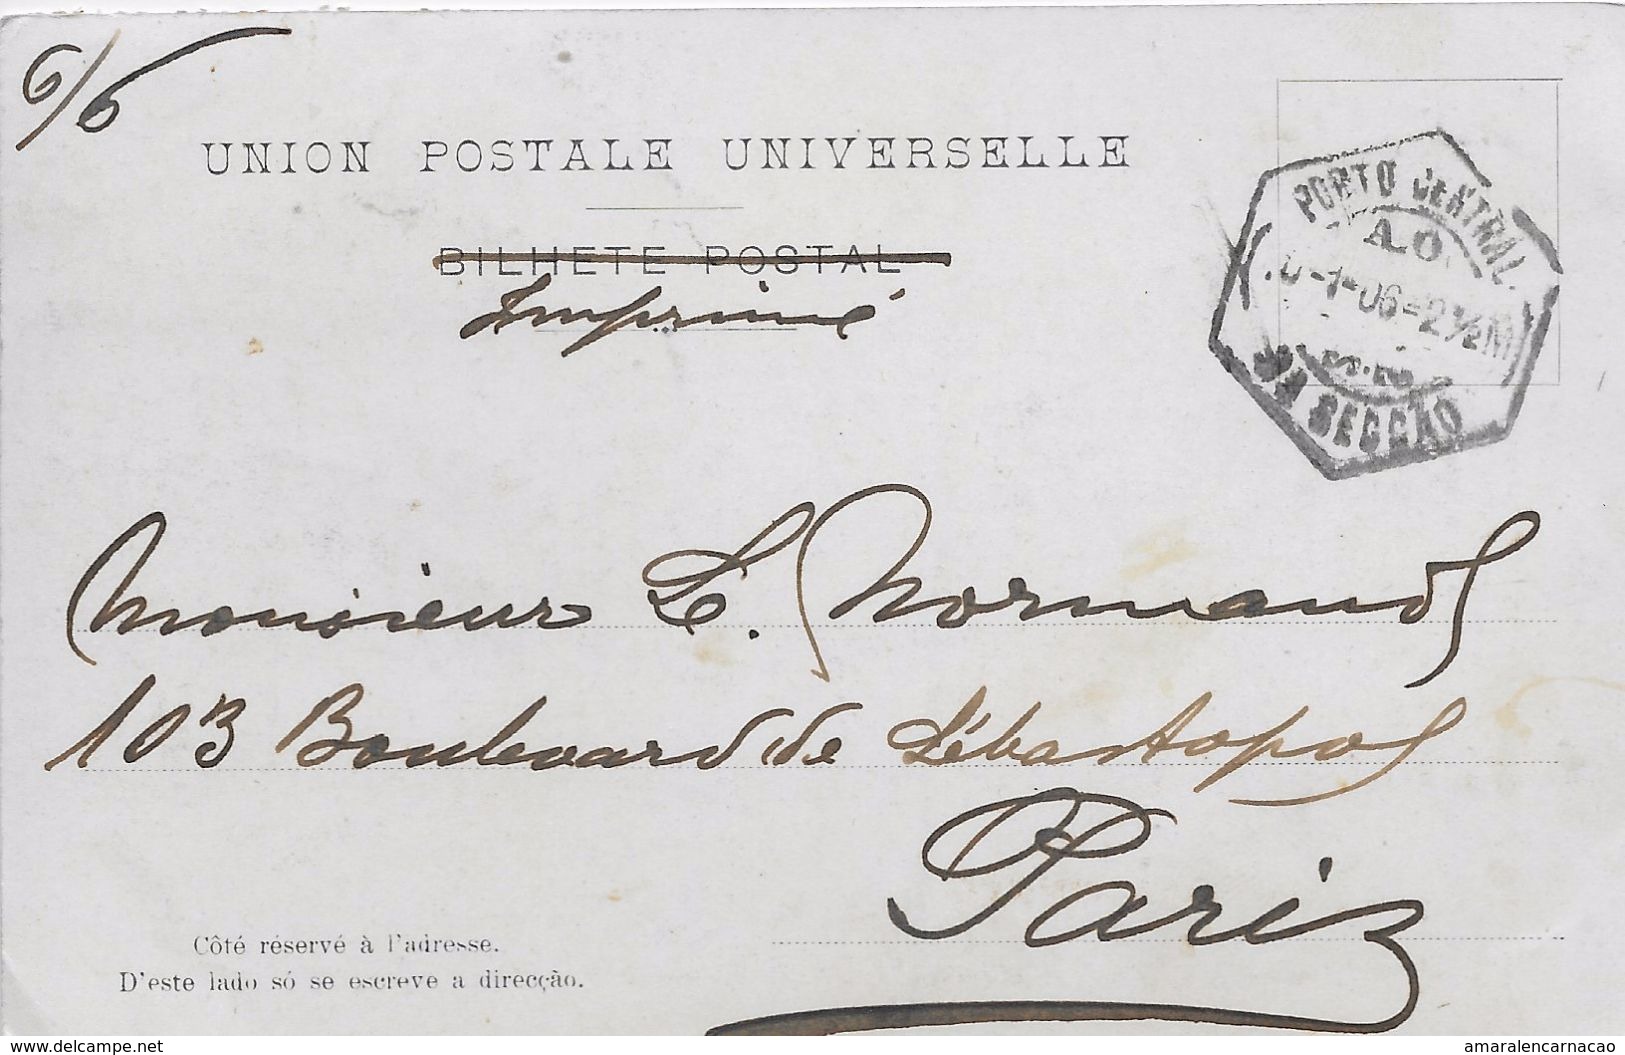 6/6
UNION POSTALE UNIVERSELLE
BILHETE POSTAL
Imprimé
PORTO CENTRAL
A.O
-1-06-2½M
SECÇÃO
Monsieur L. Normand
103 Boulevard de Sébastopol
Paris
Côté réservé à l'adresse.
D'este lado só se escreve a direcção.
www.delcampe.net
amaralencarnacao